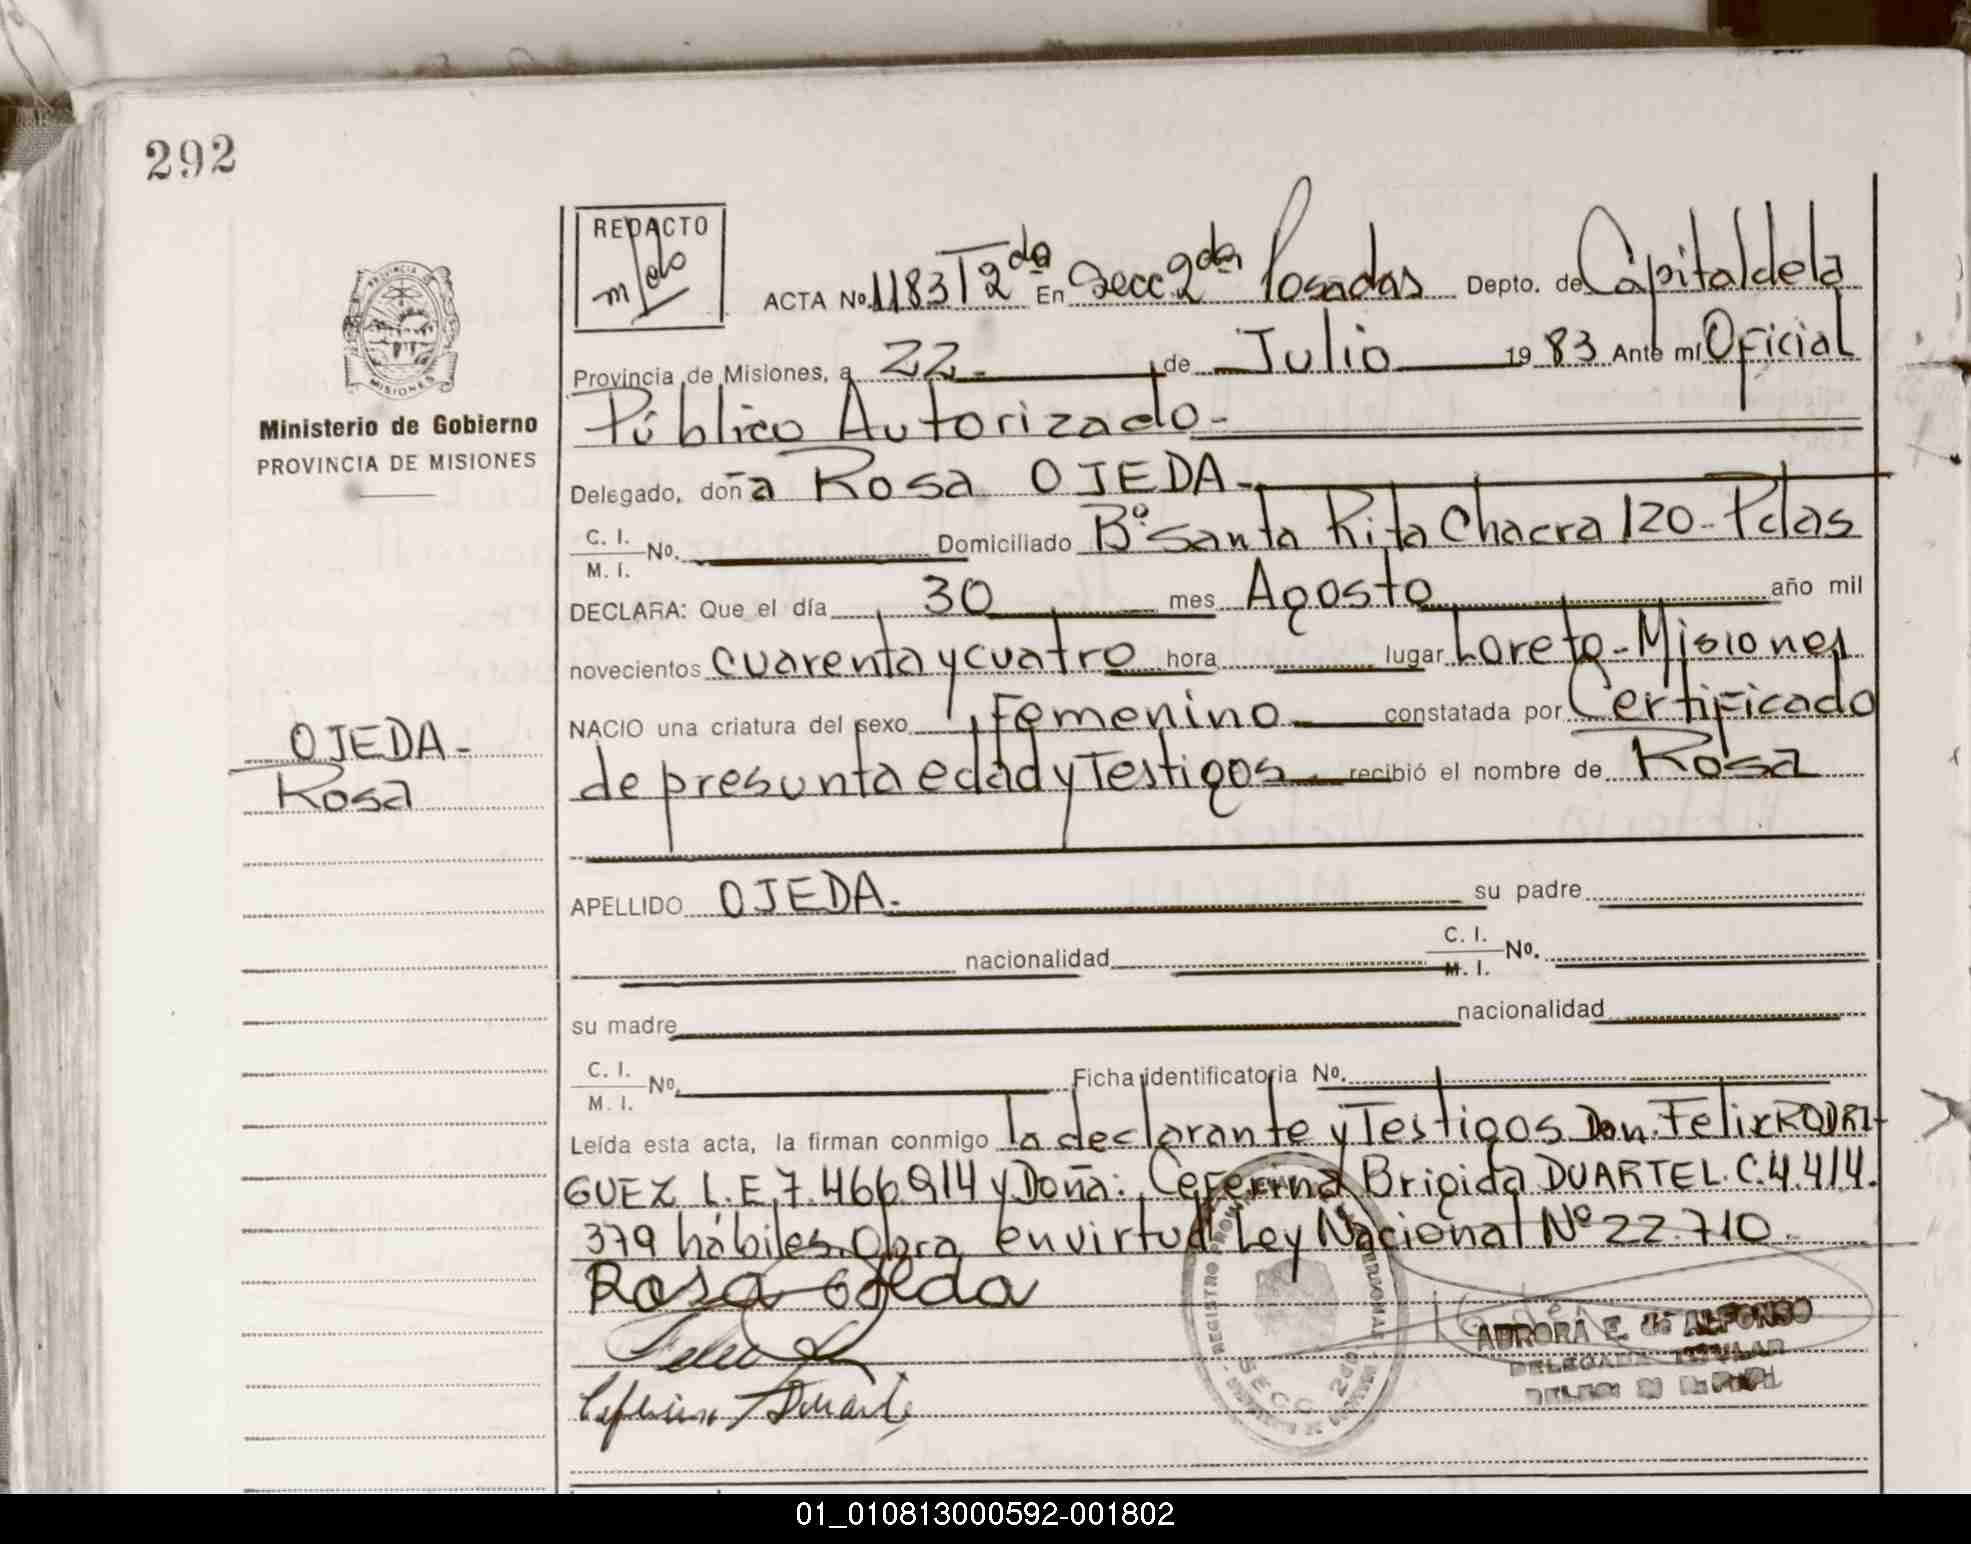 292
REDACTO
melo
ACTA No. 1183 T 2da En Secc. 2da Posadas Depto. de Capital de la
Provincia de Misiones, a 22.- de Julio 19 83 Ante mí Oficial
Público Autorizado.-
PROVINCIA
MISIONES
Ministerio de Gobierno
PROVINCIA DE MISIONES
Delegado, doña Rosa OJEDA.-
C. I.
M. I. No. Domiciliado Bº Santa Rita Chacra 120- Pdas
DECLARA: Que el día 30 mes Agosto año mil
novecientos cuarenta y cuatro hora lugar Loreto-Misiones
NACIO una criatura del sexo Femenino constatada por Certificado
OJEDA-
Rosa
de presunta edad y Testigos recibió el nombre de Rosa
APELLIDO OJEDA.- su padre
nacionalidad C. I.
M. I. No.
su madre nacionalidad
C. I.
M. I. No. Ficha identificatoria No.
Leída esta acta, la firman conmigo la declarante y Testigos Don. Felix RODRI-
GUEZ L.E. 7.466.914 y Doña: Ceferina Brigida DUARTE L.C. 4.414.
379 hábiles. Obra en virtud Ley Nacional Nº 22.710.-
Rosa Ojeda
Ceferina Duarte
REGISTRO PROVINCIAL
SECC. 2da
AURORA E. de ALFONSO
DELEGADA TITULAR
01_010813000592-001802